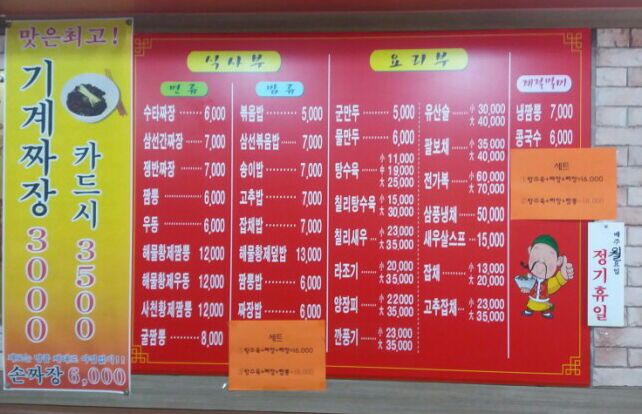 맛은최고!
기계짜장 3000
카드시 3500
손짜장 6,000
식사부
면류
수타짜장 6,000
삼선간짜장 7,000
쟁반짜장 7,000
짬뽕 6,000
우동 6,000
해물황제짬뽕 12,000
해물황제우동 12,000
사천황제짬뽕 12,000
굴짬뽕 8,000
밥류
볶음밥 5,000
삼선볶음밥 7,000
송이밥 7,000
고추밥 7,000
잡채밥 7,000
해물황제덮밥 13,000
짬뽕밥 6,000
짜장밥 6,000
세트
탕수육+짜장+짜장 16,000
탕수육+짜장+짬뽕
요리부
군만두 5,000
물만두 6,000
탕수육 小 11,000 中 19,000 大 25,000
칠리탕수육 小 15,000 大 30,000
칠리새우 小 23,000 大 35,000
라조기 小 20,000 大 35,000
양장피 小 22,000 大 35,000
깐풍기 小 23,000 大 35,000
유산슬 小 30,000 大 40,000
팔보채 小 35,000 大 40,000
전가복 小 60,000 大 70,000
삼풍냉채 50,000
새우살스프 15,000
잡채 小 13,000 大 20,000
고추잡채 小 23,000 大 35,000
계절먹거리
냉짬뽕 7,000
콩국수 6,000
세트
탕수육+짜장+짜장 16,000
탕수육+짜장+짬뽕
매주 월요일
정기휴일